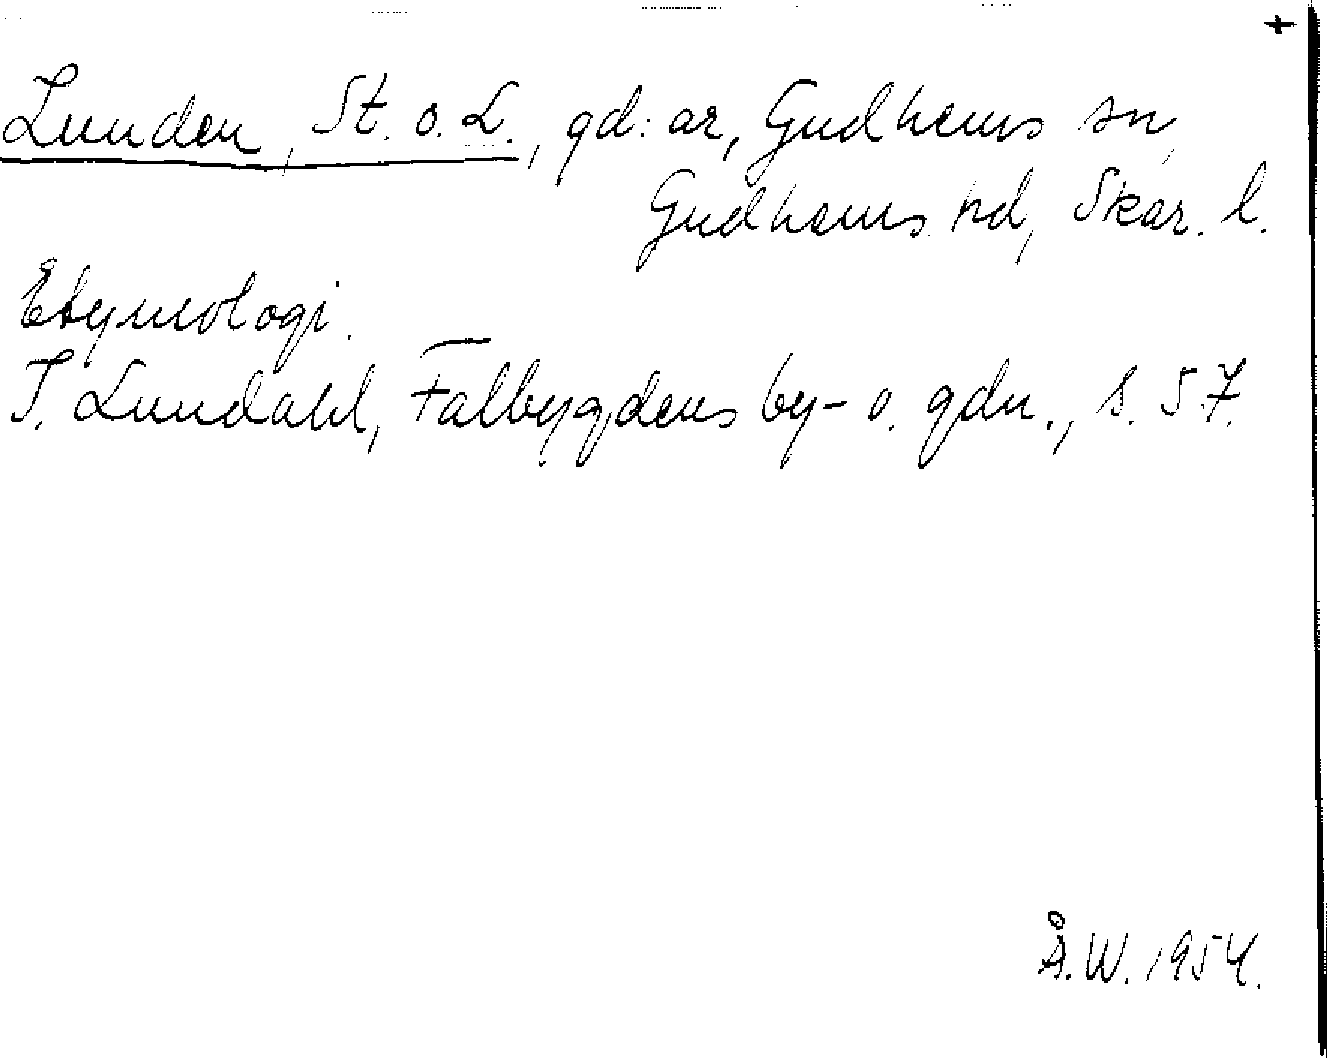 +
Lunden, St. o. L., gd:ar, Gudhems sn,
Gudhems hd, Skar. l.
Etymologi.
I. Lundahl, Falbygdens by- o. gdn., s. 57.
Å.W. 1954.